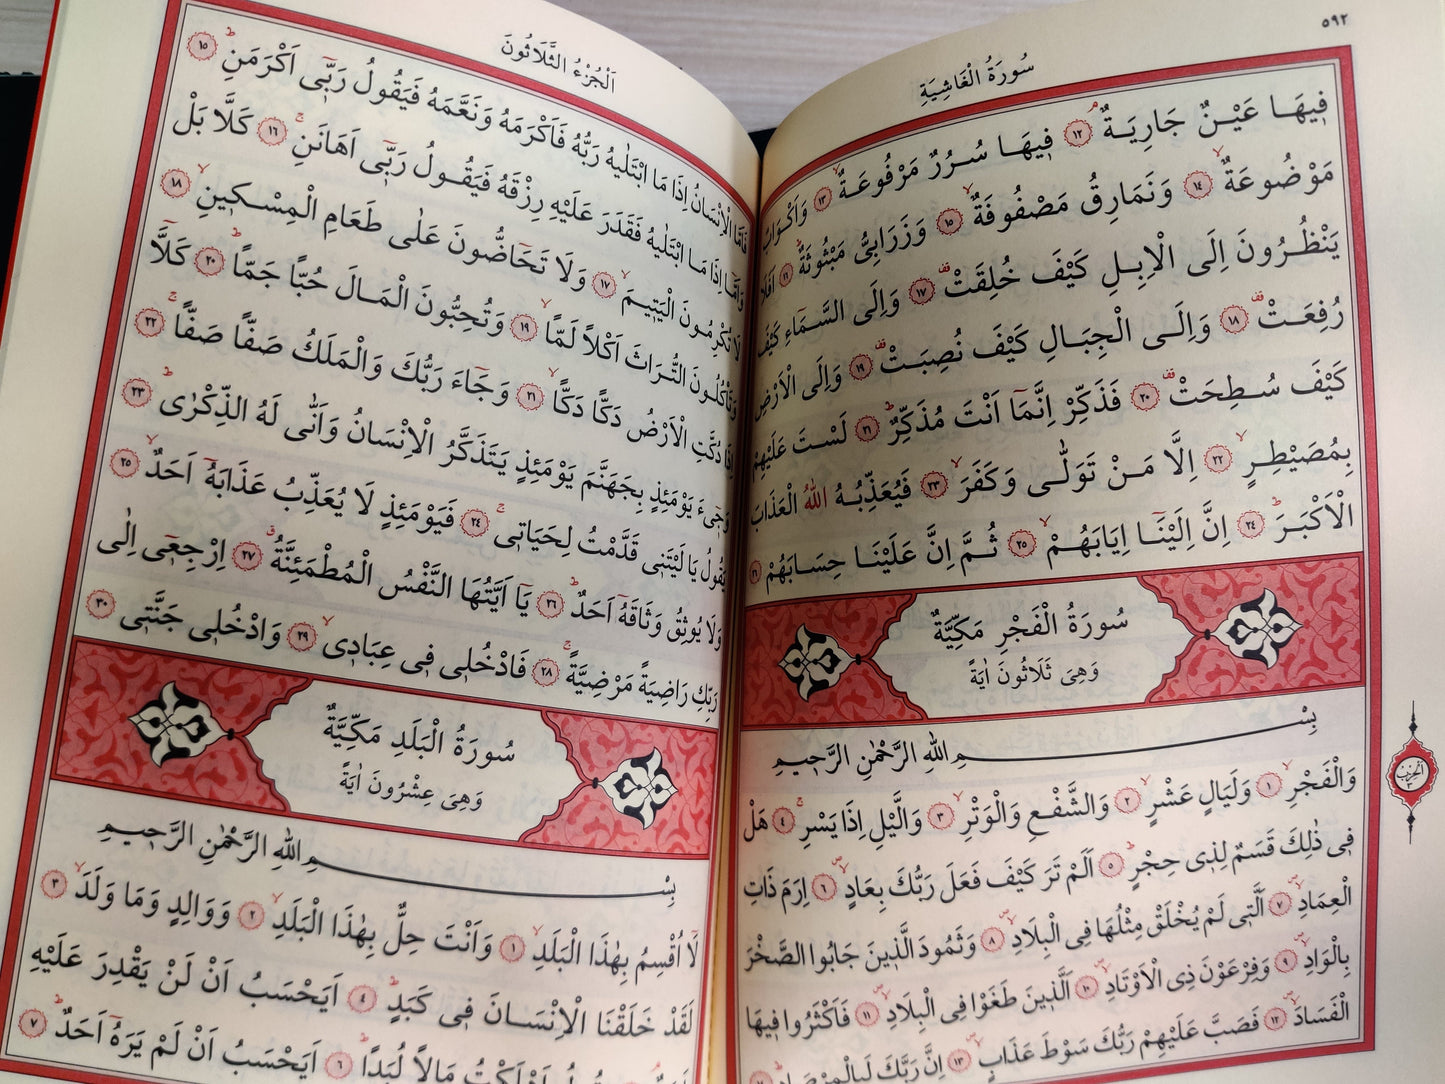 ٥٩٢
سُورَةُ الْغَاشِيَةِ
فِيهَا عَيْنٌ جَارِيَةٌ ﴿١٢﴾ فِيهَا سُرُرٌ مَرْفُوعَةٌ ﴿١٣﴾ وَاَكْوَابٌ
مَوْضُوعَةٌ ﴿١٤﴾ وَنَمَارِقُ مَصْفُوفَةٌ ﴿١٥﴾ وَزَرَابِىُّ مَبْثُوثَةٌ ﴿١٦﴾ اَفَلَا
يَنْظُرُونَ اِلَى الْاِبِلِ كَيْفَ خُلِقَتْ ﴿١٧﴾ وَاِلَى السَّمَاءِ كَيْفَ
رُفِعَتْ ﴿١٨﴾ وَاِلَى الْجِبَالِ كَيْفَ نُصِبَتْ ﴿١٩﴾ وَاِلَى الْاَرْضِ
كَيْفَ سُطِحَتْ ﴿٢٠﴾ فَذَكِّرْ اِنَّمَا اَنْتَ مُذَكِّرٌ ﴿٢١﴾ لَسْتَ عَلَيْهِمْ
بِمُصَيْطِرٍ ﴿٢٢﴾ اِلَّا مَنْ تَوَلّٰى وَكَفَرَ ﴿٢٣﴾ فَيُعَذِّبُهُ اللّٰهُ الْعَذَابَ
الْاَكْبَرَ ﴿٢٤﴾ اِنَّ اِلَيْنَا اِيَابَهُمْ ﴿٢٥﴾ ثُمَّ اِنَّ عَلَيْنَا حِسَابَهُمْ ﴿٢٦﴾
سُورَةُ الْفَجْرِ مَكِّيَّةٌ
وَهِىَ ثَلَاثُونَ اٰيَةً
بِسْمِ اللّٰهِ الرَّحْمٰنِ الرَّحِيمِ
وَالْفَجْرِ ﴿١﴾ وَلَيَالٍ عَشْرٍ ﴿٢﴾ وَالشَّفْعِ وَالْوَتْرِ ﴿٣﴾ وَالَّيْلِ اِذَا يَسْرِ ﴿٤﴾ هَلْ
فِى ذٰلِكَ قَسَمٌ لِذِى حِجْرٍ ﴿٥﴾ اَلَمْ تَرَ كَيْفَ فَعَلَ رَبُّكَ بِعَادٍ ﴿٦﴾ اِرَمَ ذَاتِ
الْعِمَادِ ﴿٧﴾ اَلَّتِى لَمْ يُخْلَقْ مِثْلُهَا فِى الْبِلَادِ ﴿٨﴾ وَثَمُودَ الَّذِينَ جَابُوا الصَّخْرَ
بِالْوَادِ ﴿٩﴾ وَفِرْعَوْنَ ذِى الْاَوْتَادِ ﴿١٠﴾ اَلَّذِينَ طَغَوْا فِى الْبِلَادِ ﴿١١﴾ فَاَكْثَرُوا فِيهَا
الْفَسَادَ ﴿١٢﴾ فَصَبَّ عَلَيْهِمْ رَبُّكَ سَوْطَ عَذَابٍ ﴿١٣﴾ اِنَّ رَبَّكَ لَبِالْمِرْصَادِ
اَلْحِزْب
٣
اَلْجُزْءُ الثَّلَاثُونَ
فَاَمَّا الْاِنْسَانُ اِذَا مَا ابْتَلٰيهُ رَبُّهُ فَاَكْرَمَهُ وَنَعَّمَهُ فَيَقُولُ رَبِّى اَكْرَمَنِ ﴿١٥﴾
وَاَمَّا اِذَا مَا ابْتَلٰيهُ فَقَدَرَ عَلَيْهِ رِزْقَهُ فَيَقُولُ رَبِّى اَهَانَنِ ﴿١٦﴾ كَلَّا بَلْ
لَا تُكْرِمُونَ الْيَتِيمَ ﴿١٧﴾ وَلَا تَحَاضُّونَ عَلٰى طَعَامِ الْمِسْكِينِ ﴿١٨﴾
وَتَأْكُلُونَ التُّرَاثَ اَكْلًا لَمًّا ﴿١٩﴾ وَتُحِبُّونَ الْمَالَ حُبًّا جَمًّا ﴿٢٠﴾ كَلَّا
اِذَا دُكَّتِ الْاَرْضُ دَكًّا دَكًّا ﴿٢١﴾ وَجَاءَ رَبُّكَ وَالْمَلَكُ صَفًّا صَفًّا ﴿٢٢﴾
وَجِىءَ يَوْمَئِذٍ بِجَهَنَّمَ يَوْمَئِذٍ يَتَذَكَّرُ الْاِنْسَانُ وَاَنّٰى لَهُ الذِّكْرٰى ﴿٢٣﴾
يَقُولُ يَا لَيْتَنِى قَدَّمْتُ لِحَيَاتِى ﴿٢٤﴾ فَيَوْمَئِذٍ لَا يُعَذِّبُ عَذَابَهُ اَحَدٌ ﴿٢٥﴾
وَلَا يُوثِقُ وَثَاقَهُ اَحَدٌ ﴿٢٦﴾ يَا اَيَّتُهَا النَّفْسُ الْمُطْمَئِنَّةُ ﴿٢٧﴾ اِرْجِعِى اِلٰى
رَبِّكِ رَاضِيَةً مَرْضِيَّةً ﴿٢٨﴾ فَادْخُلِى فِى عِبَادِى ﴿٢٩﴾ وَادْخُلِى جَنَّتِى ﴿٣٠﴾
سُورَةُ الْبَلَدِ مَكِّيَّةٌ
وَهِىَ عِشْرُونَ اٰيَةً
بِسْمِ اللّٰهِ الرَّحْمٰنِ الرَّحِيمِ
لَا اُقْسِمُ بِهٰذَا الْبَلَدِ ﴿١﴾ وَاَنْتَ حِلٌّ بِهٰذَا الْبَلَدِ ﴿٢﴾ وَوَالِدٍ وَمَا وَلَدَ ﴿٣﴾
لَقَدْ خَلَقْنَا الْاِنْسَانَ فِى كَبَدٍ ﴿٤﴾ اَيَحْسَبُ اَنْ لَنْ يَقْدِرَ عَلَيْهِ
اَهْلَكْتُ مَالًا لُبَدًا ﴿٦﴾ اَيَحْسَبُ اَنْ لَمْ يَرَهُ اَحَدٌ ﴿٧﴾